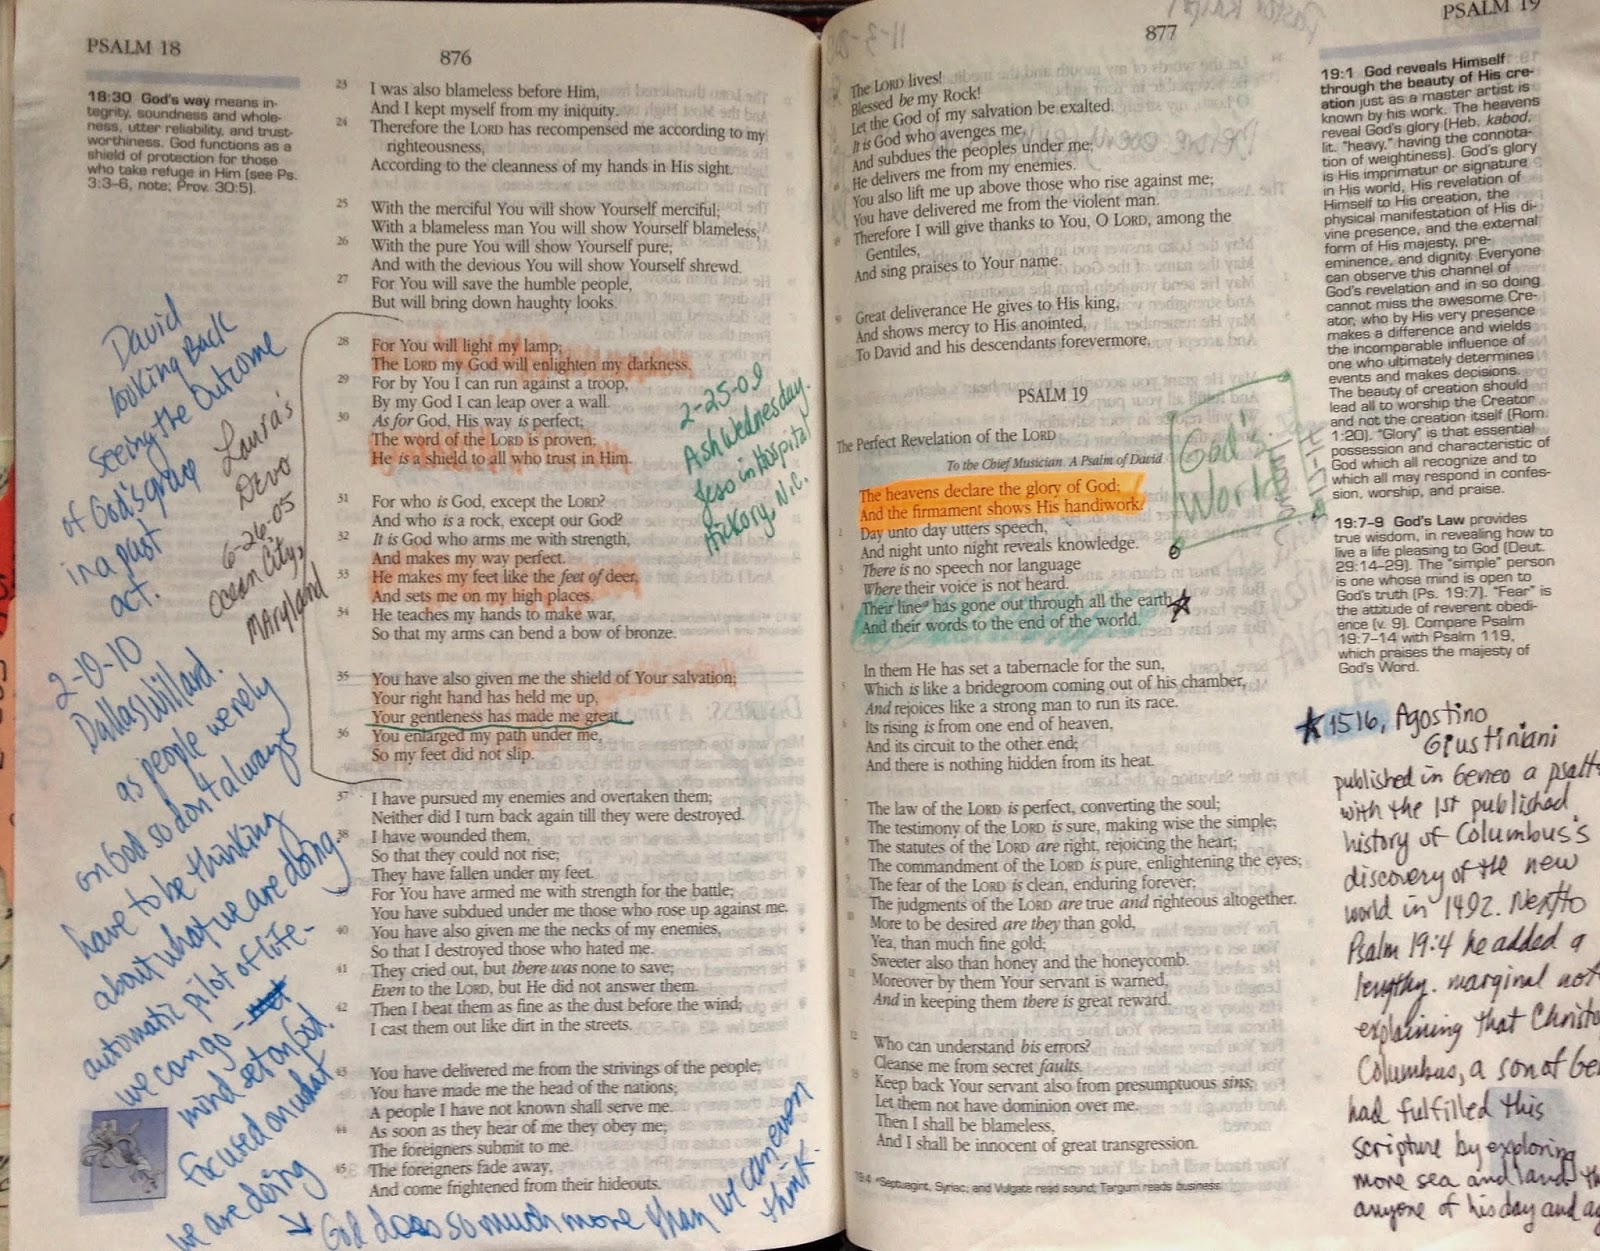 PSALM 18
876
18:30 God's way means in-
tegrity, soundness and whole-
ness, utter reliability, and trust-
worthiness. God functions as a
shield of protection for those
who take refuge in Him (see Ps.
3:3–6, note; Prov. 30:5).
David
looking Back
seeing the Outcome
of God's grace
in a past
act.
Laura's
Devo
6-26-05
Ocean City,
Maryland
2-10-10
Dallas Willard.
as people we rely
on God so don't always
have to be thinking
about what we are doing.
automatic pilot of life-
we can go -
mind set on God.
focused on what
we are doing
God does so much more than we can even
think.
23 I was also blameless before Him,
And I kept myself from my iniquity.
24 Therefore the LORD has recompensed me according to my
righteousness,
According to the cleanness of my hands in His sight.
25 With the merciful You will show Yourself merciful;
With a blameless man You will show Yourself blameless;
26 With the pure You will show Yourself pure;
And with the devious You will show Yourself shrewd.
27 For You will save the humble people,
But will bring down haughty looks.
28 For You will light my lamp;
The LORD my God will enlighten my darkness.
29 For by You I can run against a troop,
By my God I can leap over a wall.
30 As for God, His way is perfect;
The word of the LORD is proven;
He is a shield to all who trust in Him.
2-25-09
Ash Wednesday.
Jeso in Hospital
Hickory, N.C.
31 For who is God, except the LORD?
And who is a rock, except our God?
32 It is God who arms me with strength,
And makes my way perfect.
33 He makes my feet like the feet of deer,
And sets me on my high places.
34 He teaches my hands to make war,
So that my arms can bend a bow of bronze.
35 You have also given me the shield of Your salvation;
Your right hand has held me up,
Your gentleness has made me great.
36 You enlarged my path under me,
So my feet did not slip.
37 I have pursued my enemies and overtaken them;
Neither did I turn back again till they were destroyed.
38 I have wounded them,
So that they could not rise;
They have fallen under my feet.
For You have armed me with strength for the battle;
You have subdued under me those who rose up against me.
40 You have also given me the necks of my enemies,
So that I destroyed those who hated me.
41 They cried out, but there was none to save;
Even to the LORD, but He did not answer them.
42 Then I beat them as fine as the dust before the wind;
I cast them out like dirt in the streets.
43 You have delivered me from the strivings of the people;
You have made me the head of the nations;
A people I have not known shall serve me.
44 As soon as they hear of me they obey me;
The foreigners submit to me.
45 The foreigners fade away,
And come frightened from their hideouts.
877
PSALM 19
The LORD lives!
Blessed be my Rock!
Let the God of my salvation be exalted.
It is God who avenges me,
And subdues the peoples under me;
He delivers me from my enemies.
You also lift me up above those who rise against me;
You have delivered me from the violent man.
Therefore I will give thanks to You, O LORD, among the
Gentiles,
And sing praises to Your name.
Great deliverance He gives to His king,
And shows mercy to His anointed,
To David and his descendants forevermore.
PSALM 19
The Perfect Revelation of the LORD
To the Chief Musician. A Psalm of David.
God's
World
The heavens declare the glory of God;
And the firmament shows His handiwork.
Day unto day utters speech,
And night unto night reveals knowledge.
There is no speech nor language
Where their voice is not heard.
Their line has gone out through all the earth,
And their words to the end of the world.
In them He has set a tabernacle for the sun,
Which is like a bridegroom coming out of his chamber,
And rejoices like a strong man to run its race.
Its rising is from one end of heaven,
And its circuit to the other end;
And there is nothing hidden from its heat.
The law of the LORD is perfect, converting the soul;
The testimony of the LORD is sure, making wise the simple;
The statutes of the LORD are right, rejoicing the heart;
The commandment of the LORD is pure, enlightening the eyes;
The fear of the LORD is clean, enduring forever;
The judgments of the LORD are true and righteous altogether.
More to be desired are they than gold,
Yea, than much fine gold;
Sweeter also than honey and the honeycomb.
Moreover by them Your servant is warned,
And in keeping them there is great reward.
Who can understand his errors?
Cleanse me from secret faults.
Keep back Your servant also from presumptuous sins;
Let them not have dominion over me.
Then I shall be blameless,
And I shall be innocent of great transgression.
19:4 Septuagint, Syriac, and Vulgate read sound; Targum reads business.
19:1 God reveals Himself
through the beauty of His cre-
ation just as a master artist is
known by his work. The heavens
reveal God's glory (Heb. kabod,
lit. "heavy," having the connota-
tion of weightiness). God's glory
is His imprimatur or signature
in His world, His revelation of
Himself to His creation, the
physical manifestation of His di-
vine presence, and the external
form of His majesty, pre-
eminence, and dignity. Everyone
can observe this channel of
God's revelation and in so doing
cannot miss the awesome Cre-
ator, who by His very presence
makes a difference and wields
the incomparable influence of
one who ultimately determines
events and makes decisions.
The beauty of creation should
lead all to worship the Creator
and not the creation itself (Rom.
1:20). "Glory" is that essential
possession and characteristic of
God which all recognize and to
which all may respond in confes-
sion, worship, and praise.
19:7–9 God's Law provides
true wisdom, in revealing how to
live a life pleasing to God (Deut.
29:14–29). The "simple" person
is one whose mind is open to
God's truth (Ps. 19:7). "Fear" is
the attitude of reverent obedi-
ence (v. 9). Compare Psalm
19:7–14 with Psalm 119,
which praises the majesty of
God's Word.
1516, Agostino
Giustiniani
published in Geneo a psalt
with the 1st published
history of Columbus's
discovery of the new
world in 1492. Next to
Psalm 19:4 he added a
lengthy marginal not
explaining that Christo
Columbus, a son of Ge
had fulfilled this
scripture by exploring
more sea and land th
anyone of his day and ag